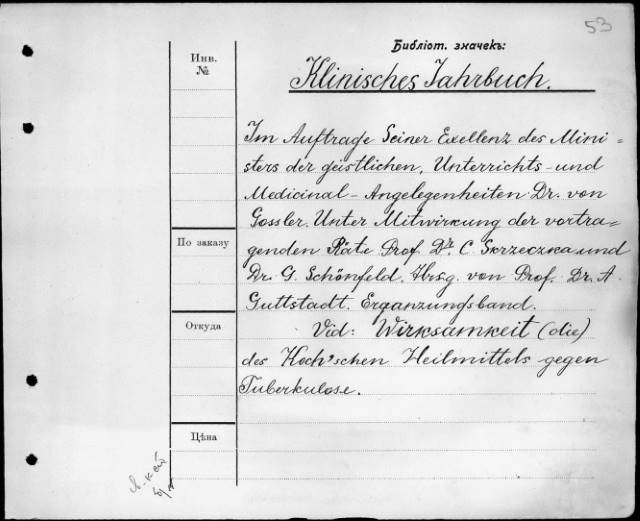 53
Библіот. значекъ:
Инв.
№
Klinisches Jahrbuch.
Im Auftrage Seiner Exellenz des Mini=
sters der geistlichen, Unterrichts- und
Medicinal-Angelegenheiten Dr. von
Gossler. Unter Mitwirkung der vortra-
По заказу
genden Räte Prof. Dr. C. Skrzeczka und
Dr. G. Schönfeld. Hrsg. von Prof. Dr. A.
Guttstadt. Erganzungsband.
Откуда
Vid: Wirksamkeit (die)
des Koch'schen Heilmittels gegen
Tuberkulose.
Цѣна